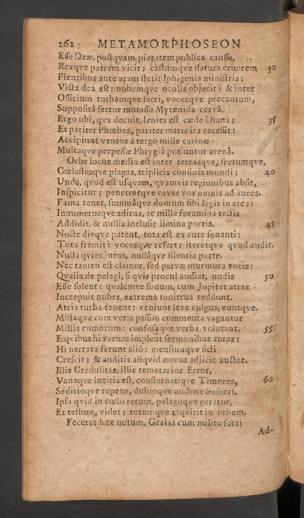 262 METAMORPHOSEON
Esse Deæ, postquam pietatem publica caussa,
Rexque patrem vicit; castumque datura cruorem 30
Flentibus ante aram stetit Iphigenia ministris;
Victa dea est; nubemque oculis objecit: & inter
Officium turbamque sacri, vocesque precantum,
Suppositâ fertur mutasse Mycenida cervâ.
Ergo ubi, qva decuit, lenita est cæde Diana; 35
Et pariter Phœbes, pariter maris ira recessit:
Accipiunt ventos â tergo mille carinæ:
Multaque perpessæ Phrygiâ potiuntur arenâ.
Orbe locus medio est inter terrasque, fretumque,
Cœlestesque plagas, triplicis confinia mundi; 40
Unde, qvod est usqvam, qvamvis regionibus absit,
Inspicitur; penetratque cavas vox omnis ad aures.
Fama tenet, summâque domum sibi legit in arce:
Innumerosque aditus, ac mille foramina tectis
Addidit, & nullis inclusit limina portis. 45
Nocte dieque patent. tota est ex ære sonanti:
Tota fremit: vocesque refert: iteratque qvod audit.
Nulla qvies intus, nullâque silentia parte.
Nec tamen est clamor, sed parvæ murmura vocis:
Qvalia de pelagi, si qvis procul audiat, undis 50
Esse solent: qvalemve sonum, cum Jupiter atras
Increpuit nubes, extrema tonitrua reddunt.
Atria turba tenent: veniunt leve vulgus, euntque.
Mistaque cum veris passim commenta vagantur
Millia rumorum: confusaque verba volutant. 55
E qvibus hi vacuas implent sermonibus aures:
Hi narrata ferunt aliò: mensuraque ficti
Crescit; & auditis aliqvid novus adjicit auctor.
Illic Credulitas, illic temerarius Error,
Vanaque lætitia est, consternatique Timores, 60
Seditioque repens, dubioque auctore Susurri.
Ipsa qvid in cœlo rerum, pelagoque geratur,
Et tellure, videt; totumque inqvirit in orbem.
Fecerat hæc notum, Graias cum milite forti
Ad-